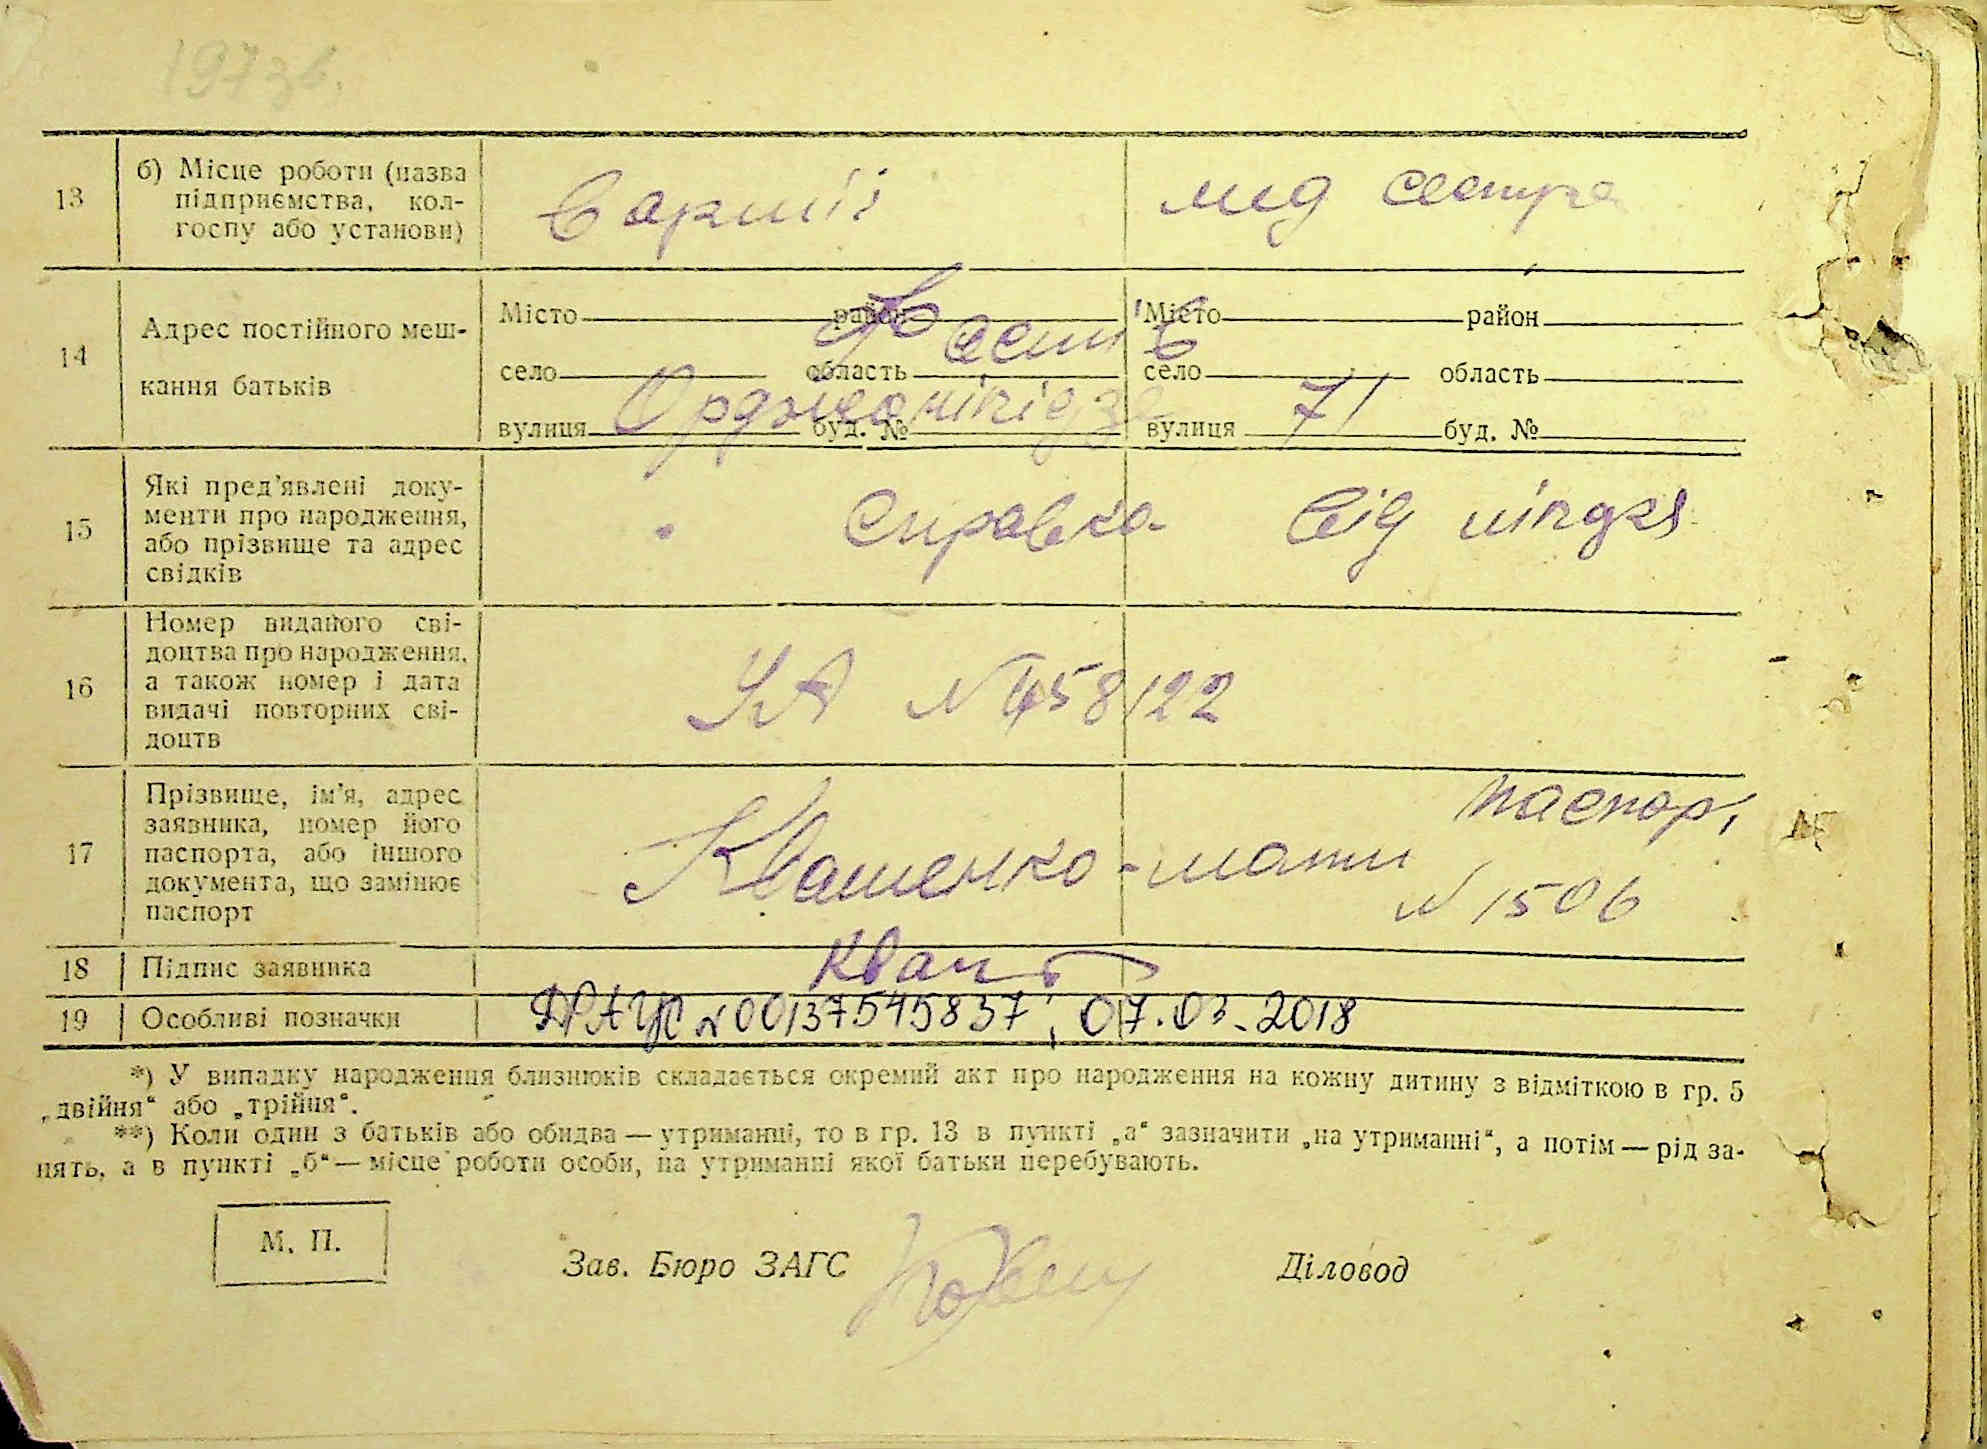 1973 г.
13
б) Місце роботи (назва
підприємства, кол-
госпу або установи)
в армії
мед сестра
14
Адрес постійного меш-
кання батьків
Місто район Місто район
Фастів
село область село область
Орджонікідзе 71
вулиця буд. № вулиця буд. №
15
Які пред'явлені доку-
менти про народження,
або прізвище та адрес
свідків
Справка
16
Номер виданого сві-
доцтва про народження,
а також номер і дата
видачі повторних сві-
доцтв
УА № 458122
17
Прізвище, ім'я, адрес
заявника, номер його
паспорта, або іншого
документа, що замінює
паспорт
паспорт
Квашенко - мати
№ 1506
18
Підпис заявника
Кваш
19
Особливі позначки
ДРАЦС № 00137545837, 07.03.2018
*) У випадку народження близнюків складається окремий акт про народження на кожну дитину з відміткою в гр. 5
„двійня“ або „трійня“.
**) Коли один з батьків або обидва — утриманці, то в гр. 13 в пункті „а“ зазначити „на утриманні“, а потім — рід за-
нять, а в пункті „б“ — місце роботи особи, на утриманні якої батьки перебувають.
М. П.
Зав. Бюро ЗАГС
Діловод